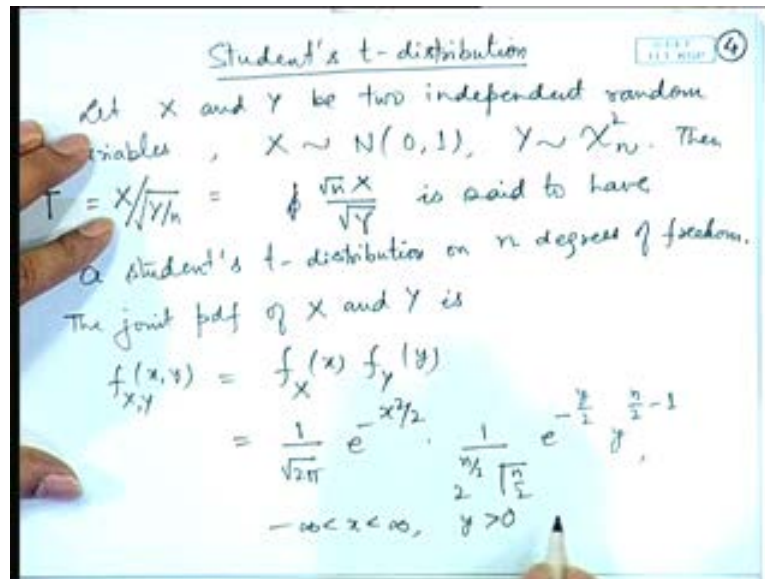 Student's t-distribution
4
Let X and Y be two independent random
variables, X ~ N(0,1), Y ~ χ²ₙ. Then
T = X/√(Y/n) = √n X / √Y is said to have
a student's t-distribution on n degrees of freedom.
The joint pdf of X and Y is
f_{X,Y}(x,y) = f_X(x) f_Y(y)
= 1/√(2π) e^{-x²/2} · 1/(2^{n/2} Γ(n/2)) e^{-y/2} y^{n/2 - 1},
-∞ < x < ∞, y > 0